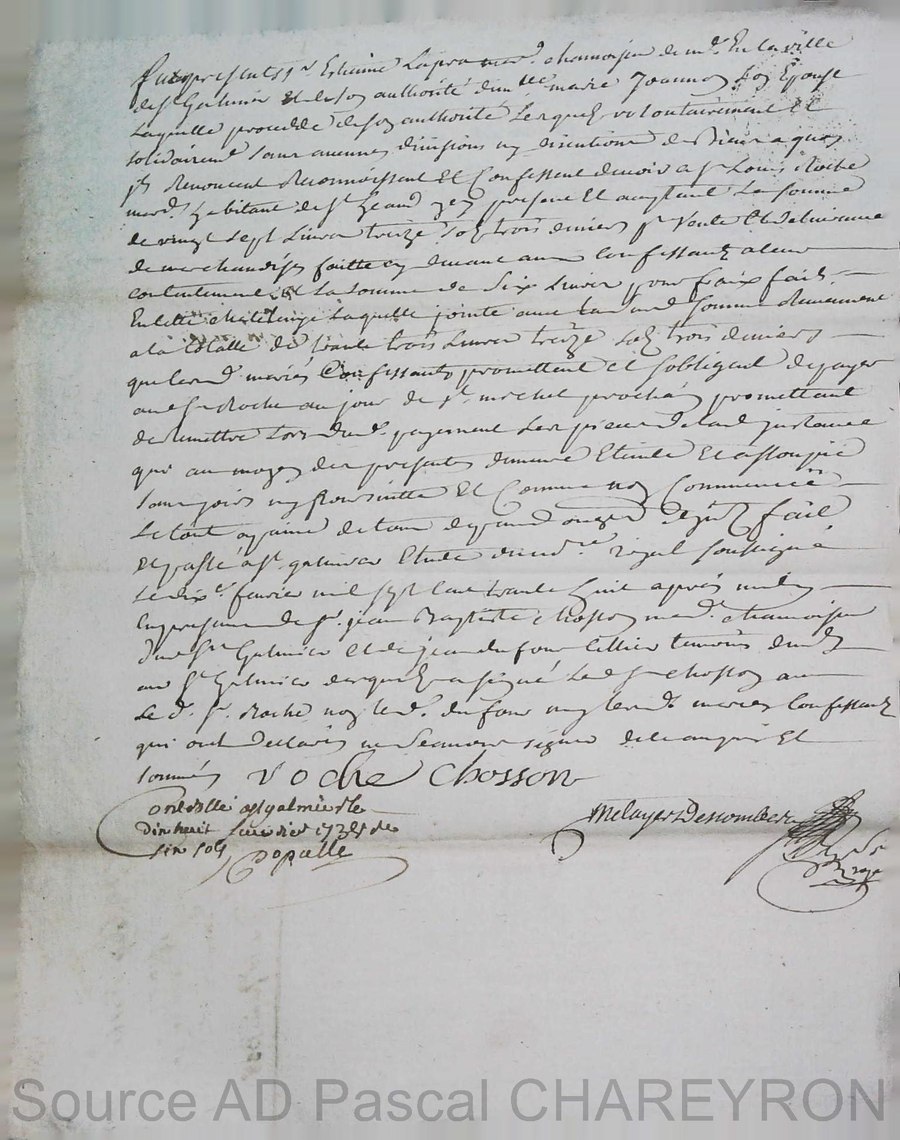 furent presents sr Estienne Lapra mard. chamoiseur de md. En la ville
de st Galmier et de son authorité dmlle marie Joannon son Epouse
Laquelle procedde de son authorité Lesquels volontairement Et
solidairemt. sans aucunes divisions ny discutions de Biens a quoy
ils Renoncent Reconnoissent Et Confessent devoir a sr Louis Roche
mard. habitant de st present Et acceptant La somme
de vingt sept Livres treize sols trois deniers pr vente Et delivrance
de merchandises faitte cy devant aux confessants a leur
contentement et La somme de Six Livres pour fraix faits
En Laquelle jointe avec somme Reviennent
a la totalle de trante trois Livres treize sols trois deniers
que lesd. mariés Confessants promettent et sobligent de payer
aud. sr Roche au jour de st. michel prochain promettant
de Remettre Lors dud. payement Les pieces de lad. instance
qui au moyen des presentes demeure Eteinte Et assoupie
comme non Commencée
Le tout a paine de tous depans fait
Et passé a st. galmier Etude du no.re royal soussigné
Le dix fevrier mil sept cent trante huit apres midy
En presence de sr. jean Baptiste chosson mard. chamoiseur
dud. st Galmier et de jean dufour tellier temoins
aud. st Galmier desquels a signé Led. sr chosson avec
Le d. sr. Roche non led. dufour ny lesd. mariés Confessants
qui ont declaré ne scavoir signer de ce anquis Et
sommés roche Chosson
Controllé a st galmier le
dix huit fevrier 1738 Rs
six sols
Populle